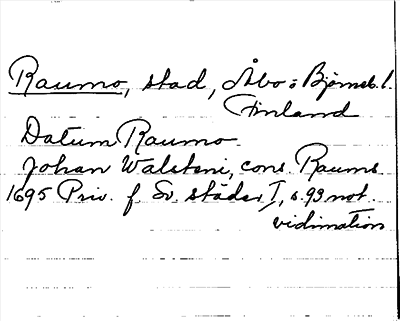 Raumo, stad, Åbo o Björneb. l.
Finland
Datum Raumo
Johan Walsteni, cons. Raumo
1695 Priv. f Sv. städer I, s. 93 not.
vidimation